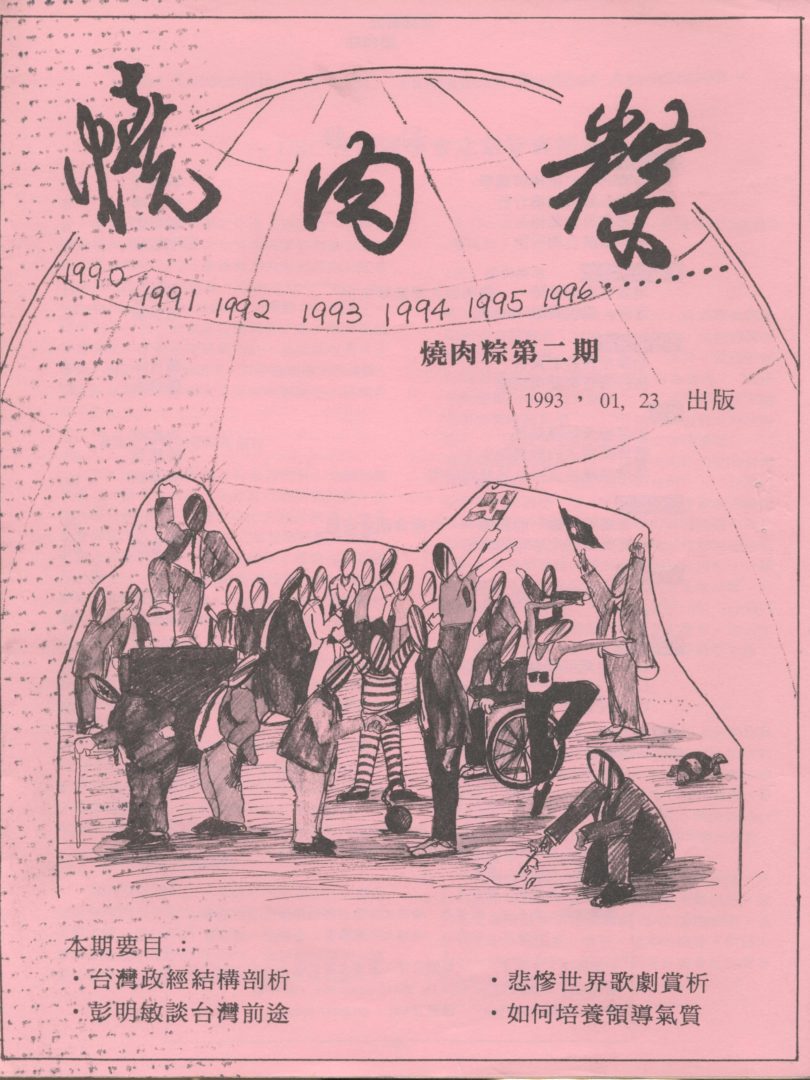 燒肉粽
1990 1991 1992 1993 1994 1995 1996........
燒肉粽第二期
1993，01, 23 出版
本期要目：
・台灣政經結構剖析
・彭明敏談台灣前途
・悲慘世界歌劇賞析
・如何培養領導氣質